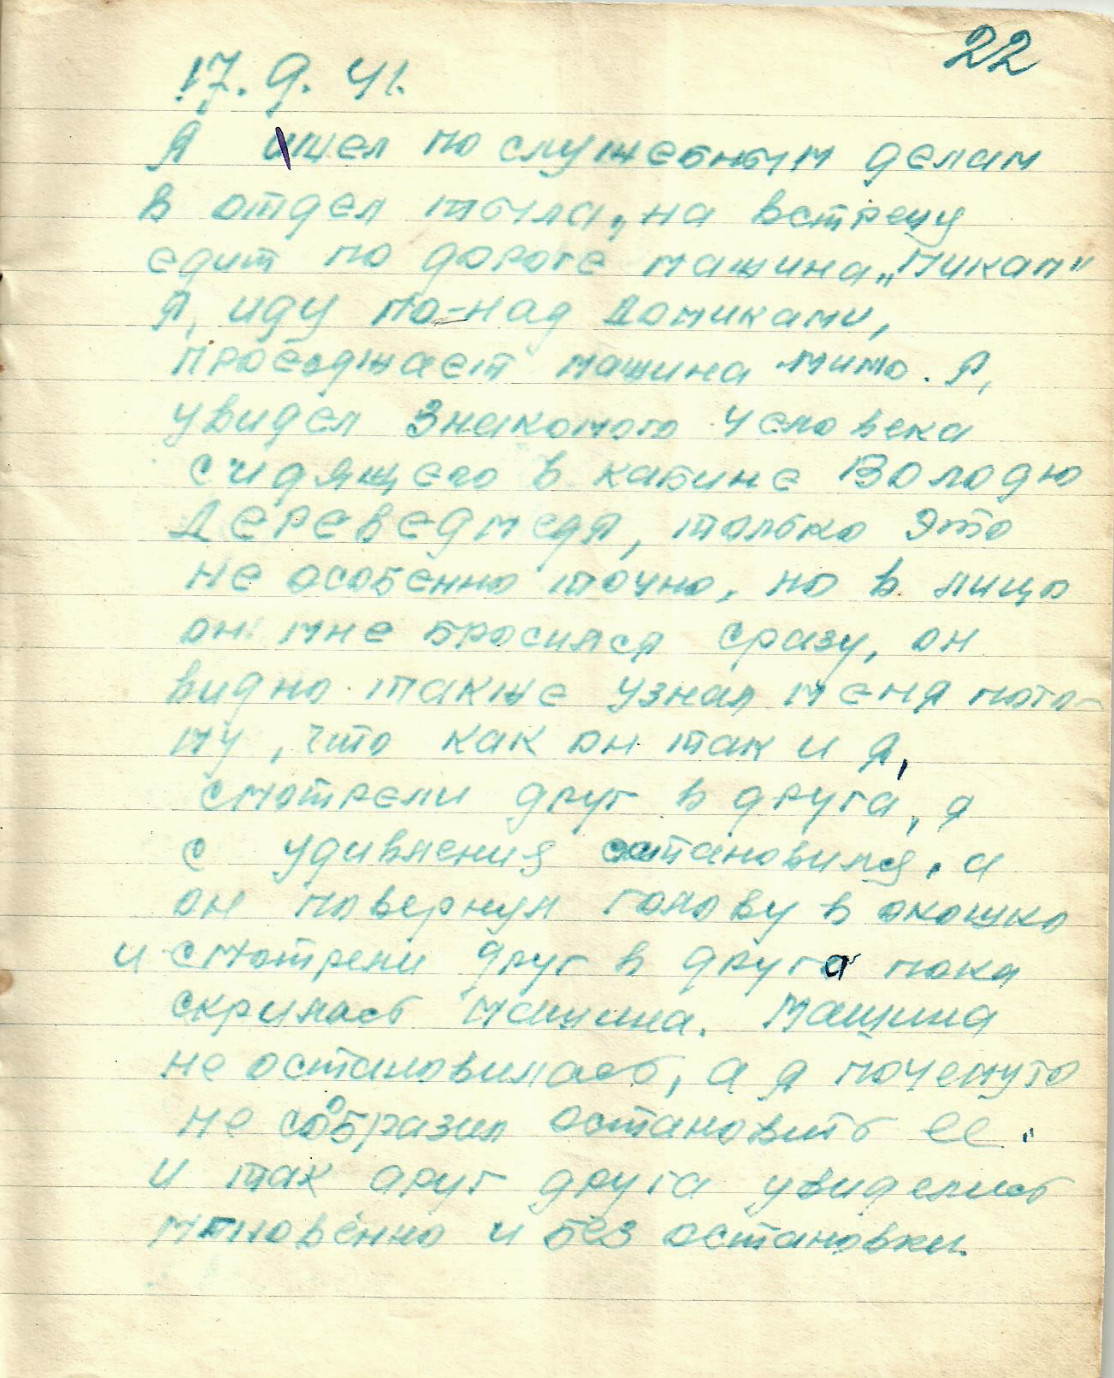 22
17. 9. 41.
Я шел по служебным делам
в отдел тыла, на встречу
едит по дороге машина „Пикап"
Я, иду по-над домиками,
проезджает машина мимо. Я,
увидел знакомого человека
сидящего в кабине Володю
Дереведмедя, только это
не особенно точно, но в лицо
он мне бросился сразу, он
видно также узнал меня пото-
му, что как он так и я,
смотрели друг в друга, я
с удивления остановился, а
он повернул голову в окошко
и смотрели друг в друга пока
скрилась машина. Машина
не остановилась, а я почемуто
не сообразил остановить ее.
и так друг друга увиделись
мгновенно и без остановки.